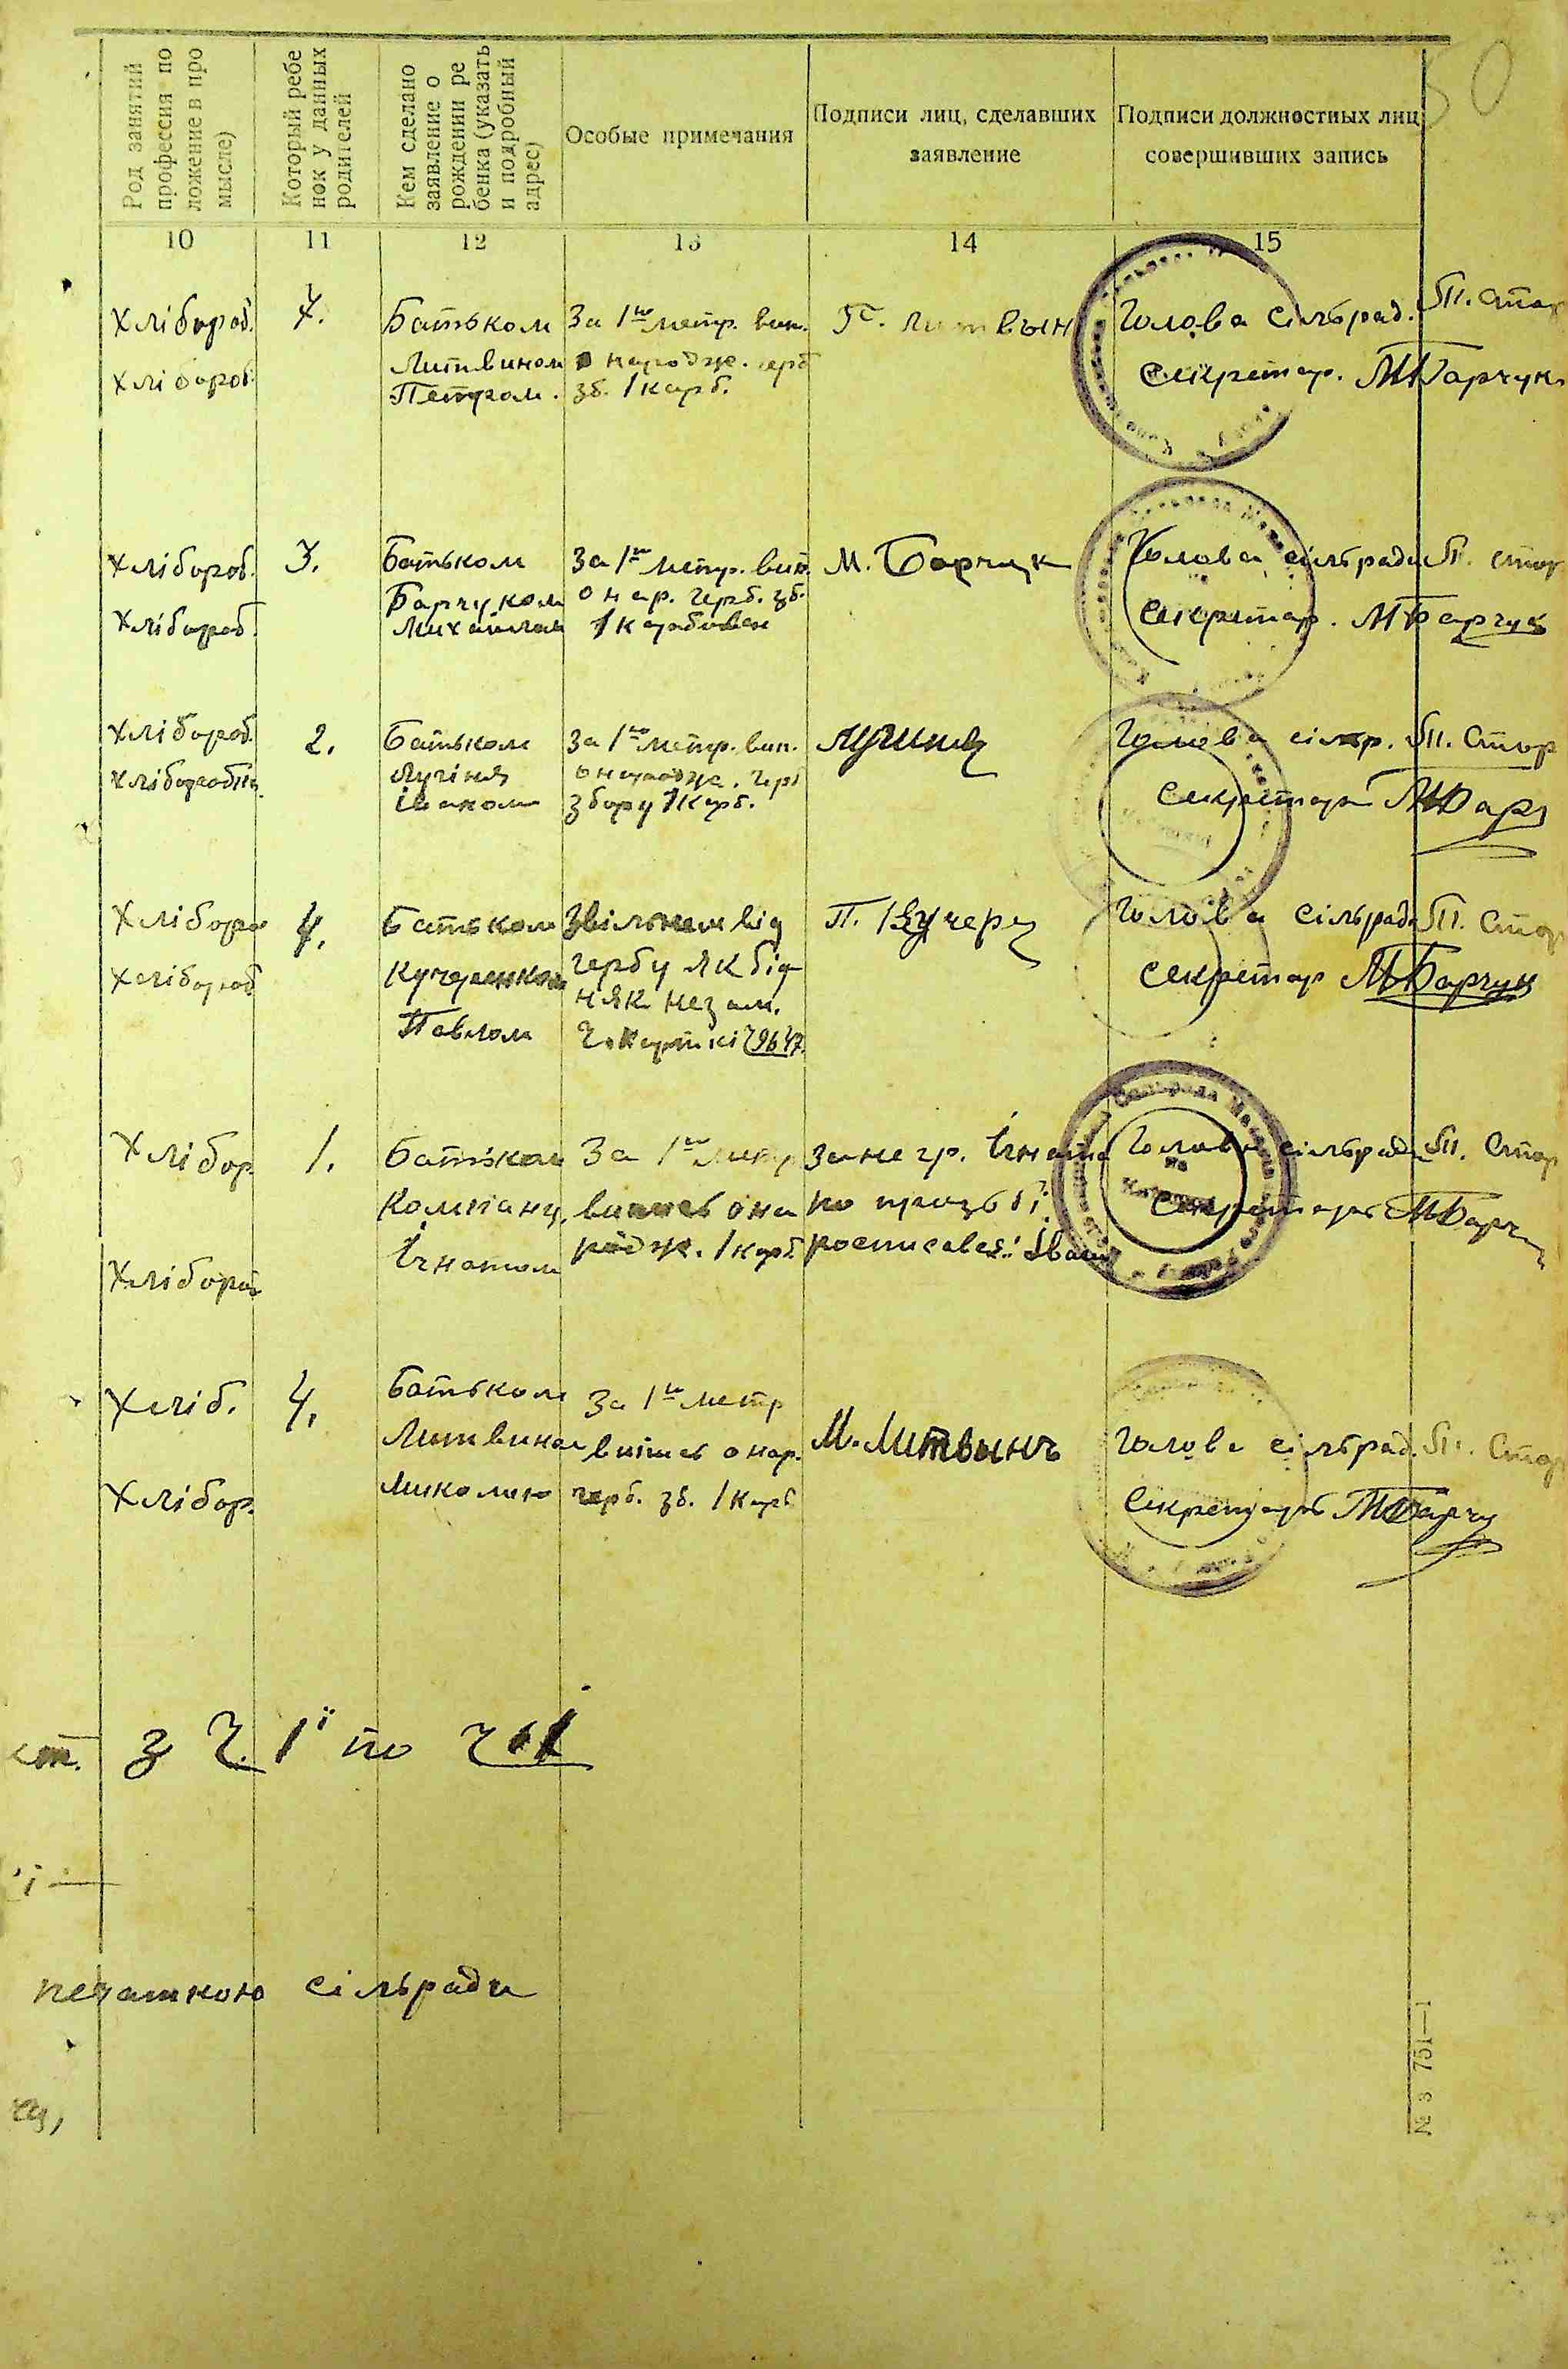 50
Род занятий
профессия по
ложение в про
мысле)
Который ребе
нок у данных
родителей
Кем сделано
заявление о
рождении ре
бенка (указать
и подробный
адрес)
Особые примечания
Подписи лиц, сделавших
заявление
Подписи должностных лиц
совершивших запись
10 11 12 13 14 15
Хлібороб.
Хлібороб.
4.
Батьком
Литвином
Петром.
За 1шу метр. вип.
о народж. герб
зб. 1 карб.
Литвын
Голова сільрад. П. Стор
Секретар. МБарчук
Хлібороб.
Хлібороб.
3.
Батьком
Барчуком
Михайлом
За 1шу метр. вип.
о нар. герб. зб.
1 карбован
М. Барчук
Голова сільради П. Стор
Секретар. МБарчук
Хлібороб.
Хліборобка.
2.
Батьком
Лучіня
Іваном
За 1шу метр. вип.
о народж. герб
збору 1 карб.
Голова сільр. П. Стор
Секретарь МБарч
Хлібороб
Хлібороб
4.
Батьком
Кучеренком
Павлом
Звільнен від
гербу як бід
няк незам.
Ч. карткі
П. Кучере
Голова сільради П. Стор
Секретар МБарчук
Хлібор
Хлібороб
1.
Батьком
Компанц.
Ігнатом
За 1шу метр
випись о на
родж. 1 карб
За не гр. Ігната
по прозьбі
росписався: Іван
Голова сільради П. Стор
Секретарь МБарч
Хліб.
Хлібор.
4.
Батьком
Литвином
Миколою
За 1шу метр
випись о нар.
герб. зб. 1 карб
М. Литвынъ
Голова сільрад. П. Стор
Секретарь МБарчу
ст. з Ч. 1ї по Ч.
печаткою сільради
№ 3 751—1